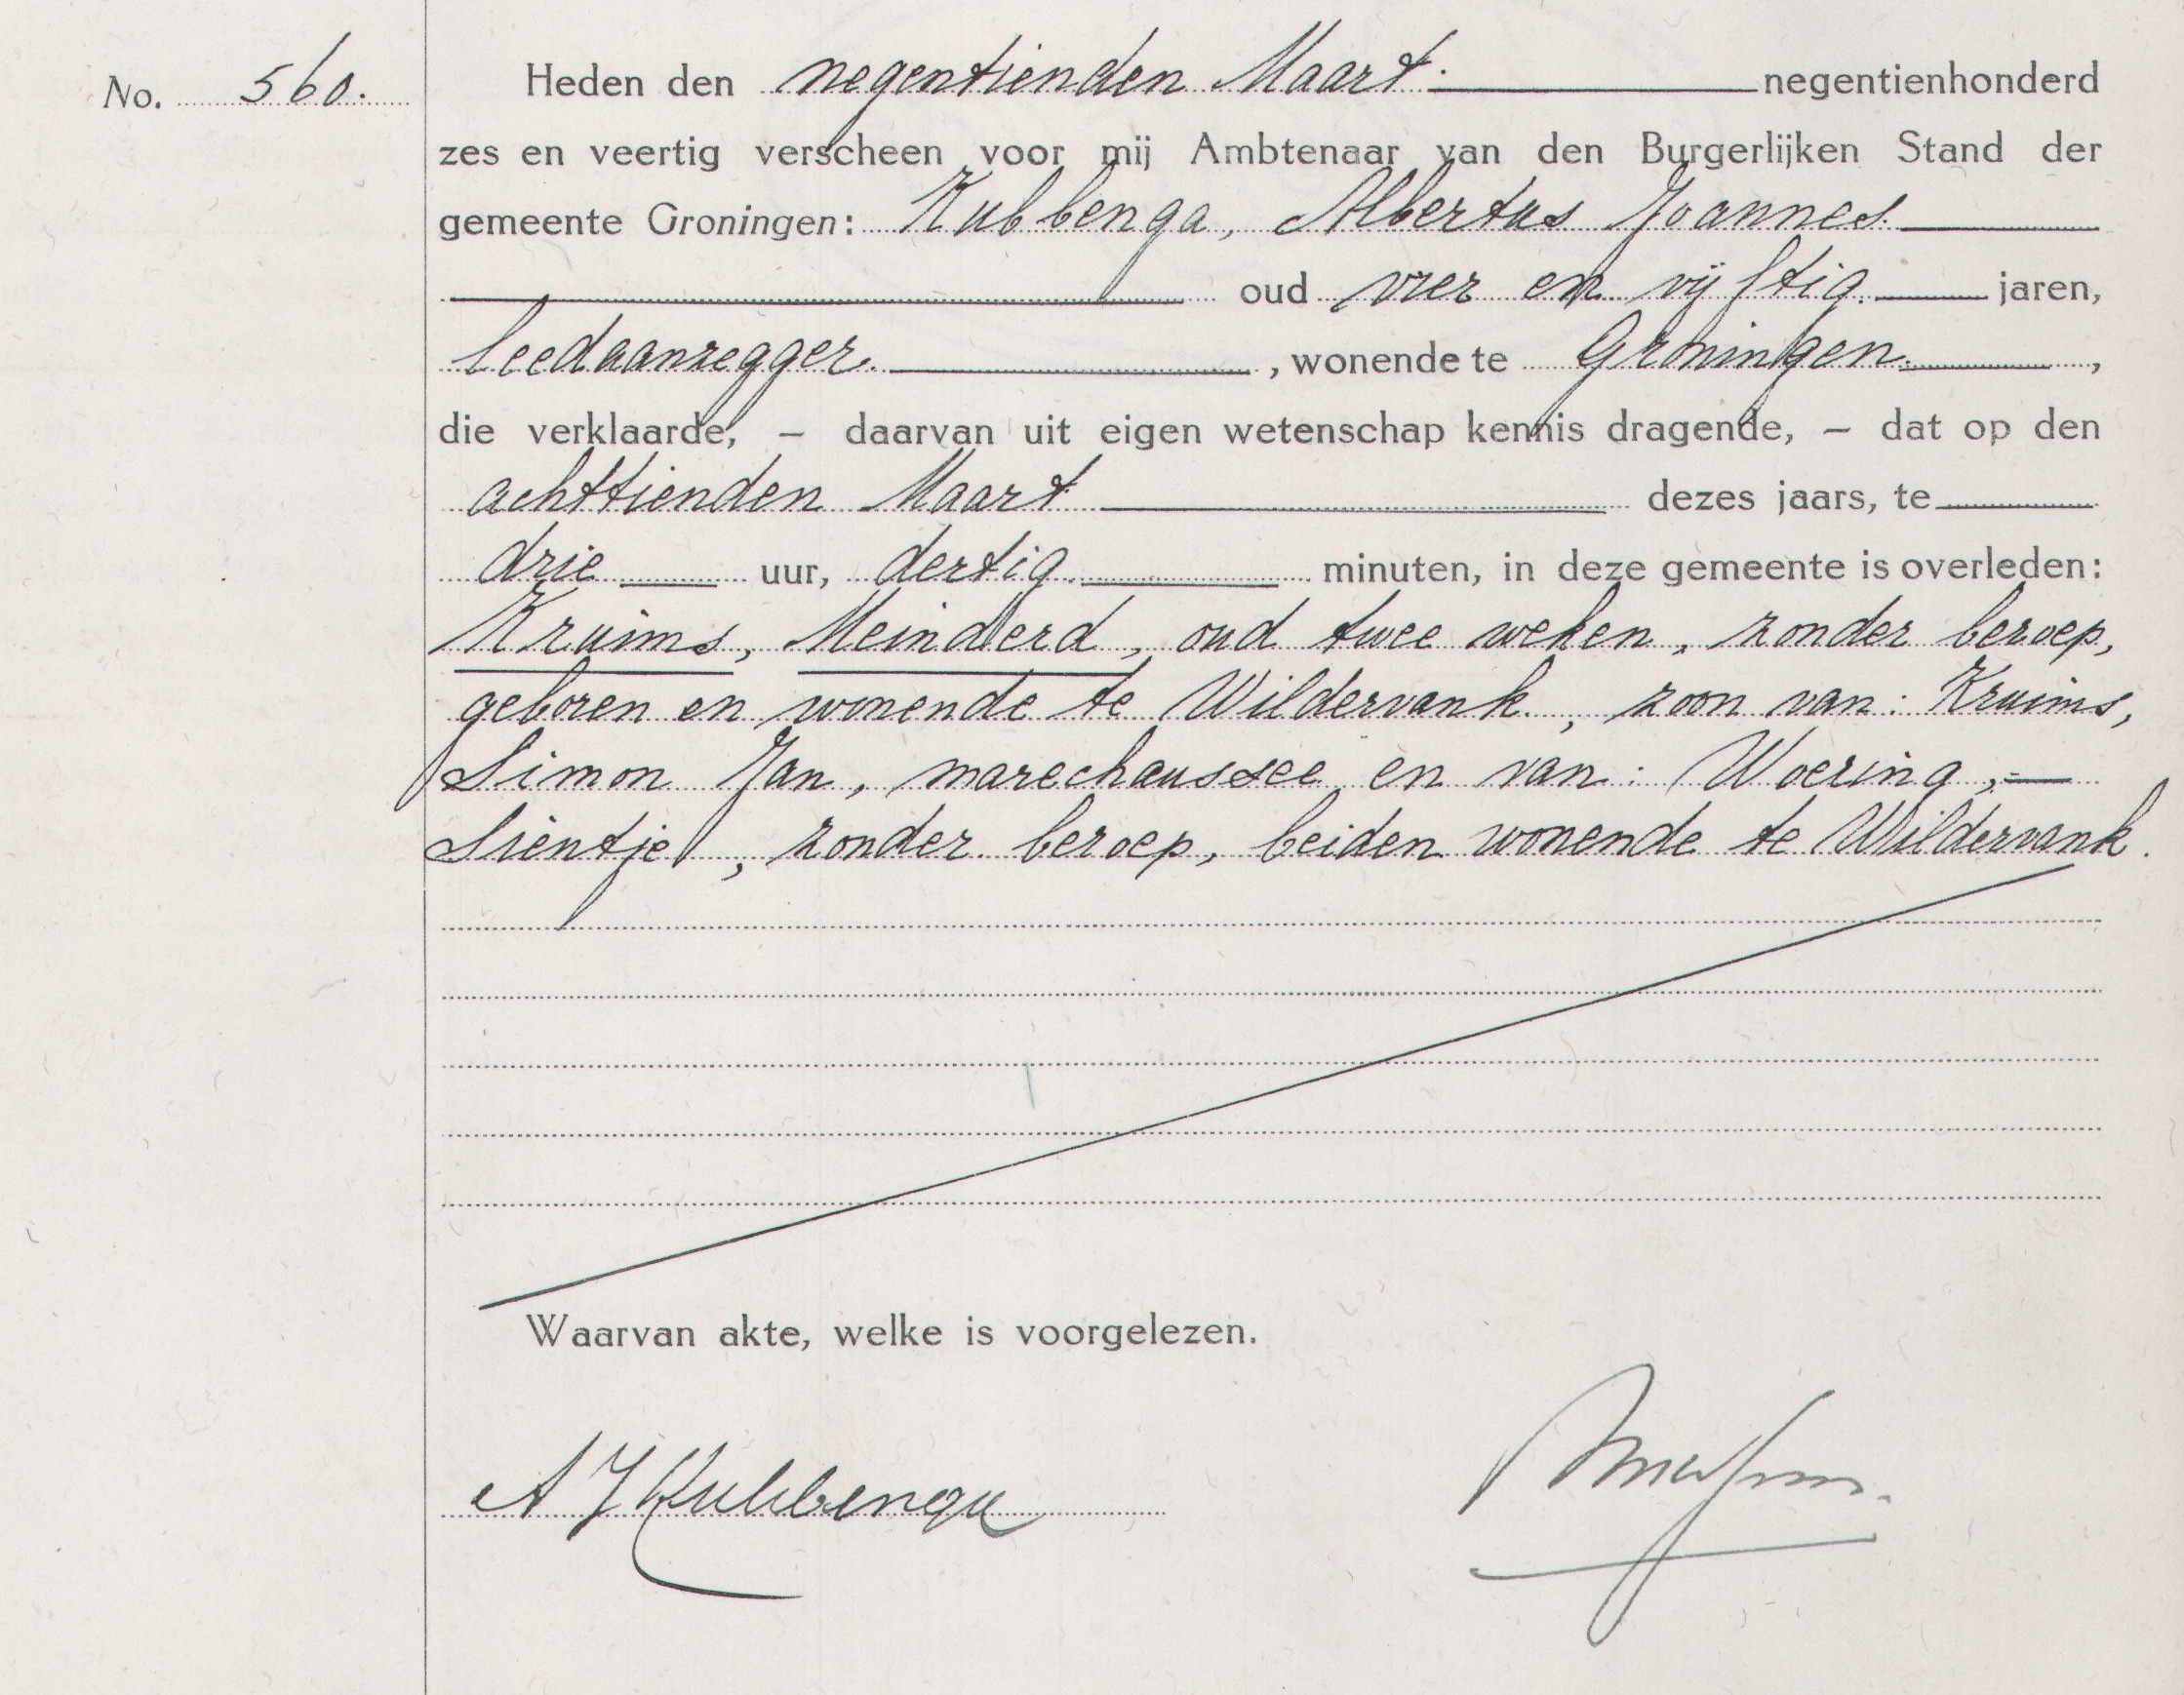 No. 560.
Heden den negentienden Maart. negentienhonderd
zes en veertig verscheen voor mij Ambtenaar van den Burgerlijken Stand der
gemeente Groningen: Kubbenga, Albertus Joannes.
oud vier en vijftig. jaren,
leedaanzegger. , wonende te Groningen. ,
die verklaarde, – daarvan uit eigen wetenschap kennis dragende, – dat op den
achttienden Maart dezes jaars, te
drie uur, dertig minuten, in deze gemeente is overleden:
Kruims, Meinderd, oud twee weken, zonder beroep,
geboren en wonende te Wildervank, zoon van: Kruims,
Simon Jan, marechaussee en van: Woering,
Sientje, zonder beroep, beiden wonende te Wildervank.
Waarvan akte, welke is voorgelezen.
A J Kubbenga